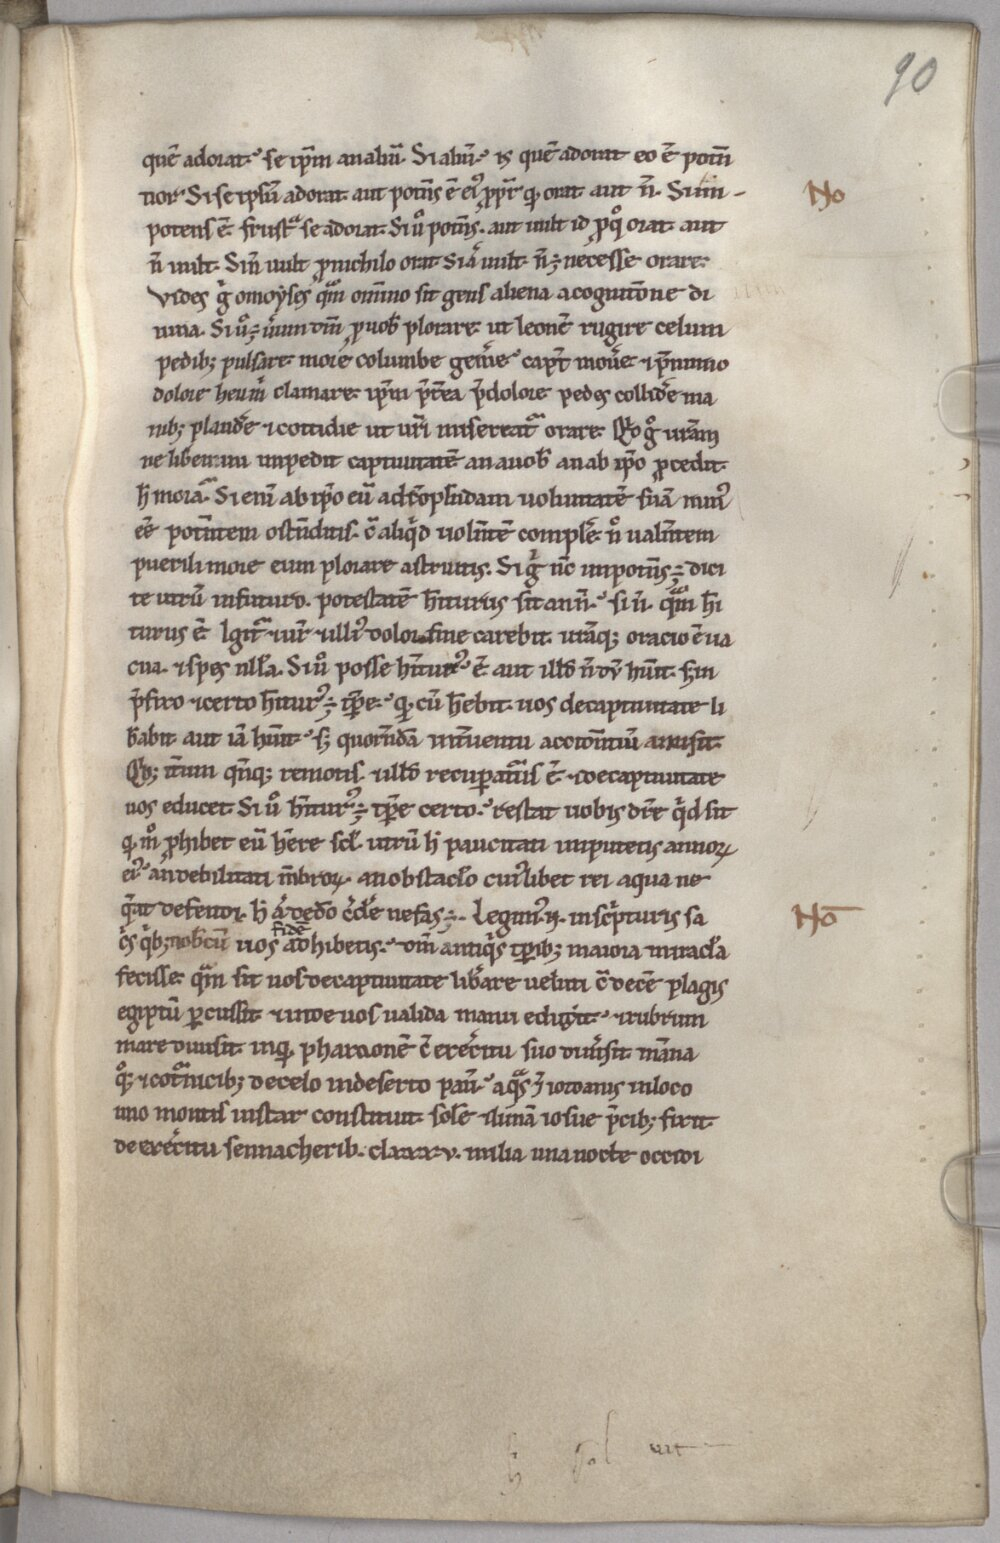 90
quē adorat. se ip̄m an aliū. Si aliū. is quē adorat eo ē potn̄
tior. Si se ipsū adorat. aut potn̄s ē ei9 ꝓpt̄ qͥ orat aut n̄. Si im-
No
potens ē. frustᵃ se adorat. Si ů potn̄s. aut uult id ꝓ qͦ orat. aut
n̄ uult. Si n̄ uult ꝓ nichilo orat. Si aͥ uult. n̄ ÷ necesse orare.
Vides gͦ o moẏses qͣm omīno sit gens aliena a cognitione di
uina. Si ů ÷ deum ꝓ uob̄ plorare. ut leonē rugire celum
pedibꝫ pulsare. more columbe gem̄e. cap̄t mou̅e ⁊ p̄ nimio
dolore heu m̄ clamare. ip̄m p̄t̄ea p̄ dolore pedes collid̄e ma
nibꝫ plaud̄e ⁊ cottidie ut ur̄i misereatᵃ orare. Qͦ gͦ ur̄am
ne liberem impedit captiuitatē an a uob̄ an ab ip̄o ꝓcedit.
h̄ moraᵃ. Si eni ab ip̄o eū ad
eē potn̄tem ostn̄ditis. c̄ aliqͥd uoln̄tē compl̄e. nͦ ualn̄tem
puerili more eum plorare astruitis. Si gͥ nc̄ impotn̄s ÷ dici
te utrū in futuro. potestatē h̄iturus sit an n̄. si n̄. qͣm h̄i
turus ē. Igit̄ᵃ ur̄ ⁊ illi9 dolor fine carebit. ur̄aqꝫ oracio ē ua
cua. ⁊ spes nlľa. Si ů posse h̄itur9 ē. aut illđ n̄ dū hūit. s; in
p̄fixo ⁊ certo h̄itur9 ÷ tp̄re. qͥ cū h̄ebit. uos de captiuitate li
b̄abit. aut iā hūit. s; quorūdā int̄uentu accidn̄tiū amisit.
Qͥbꝫ it̄um qn̄qꝫ remotis. ⁊ illđ recupatus ē. ⁊ de captiuitate
uos educet. Si ů h̄itur9 ÷ tp̄re certo. restat uobis dr̄e qͥd sit
qͥ mͦ ꝓhibet eū h̄ere scl̄. utrū h̄ paucitati imputetis annoꝝ
ei9. an debilitati mēbroꝝ. an obstaclo cui9libet rei a qua ne
qͥat defendi. h̄ aͥ de deo c̄d̄e nefas ÷. Legim9 n̄. in sc̄pturis sa
No
c̄s qͥbꝫ nob̄cū uos fidē adhibetis. deū antiqͥs tp̄ribꝫ maiora miracľa
fecisse. qͣm sit uos de captiuitate lib̄are. ueluti c̄ decē plagis
egiptū ꝑcussit. ⁊ inde uos ualida manu eduxit. ⁊ rubrum
mare diuisit. inqͥ pharaonē c̄ exer̄citu suo dim̄sit. manna
qͦꝫ ⁊ cotᵃnicibꝫ de celo in deserto pauit. aqͣs iordanis in loco
uno montis instar constituit. solē ⁊ lunā iosue p̄cibꝫ fixit.
de exer̄citu sennacherib. clxxxv. milia una nocte occidi